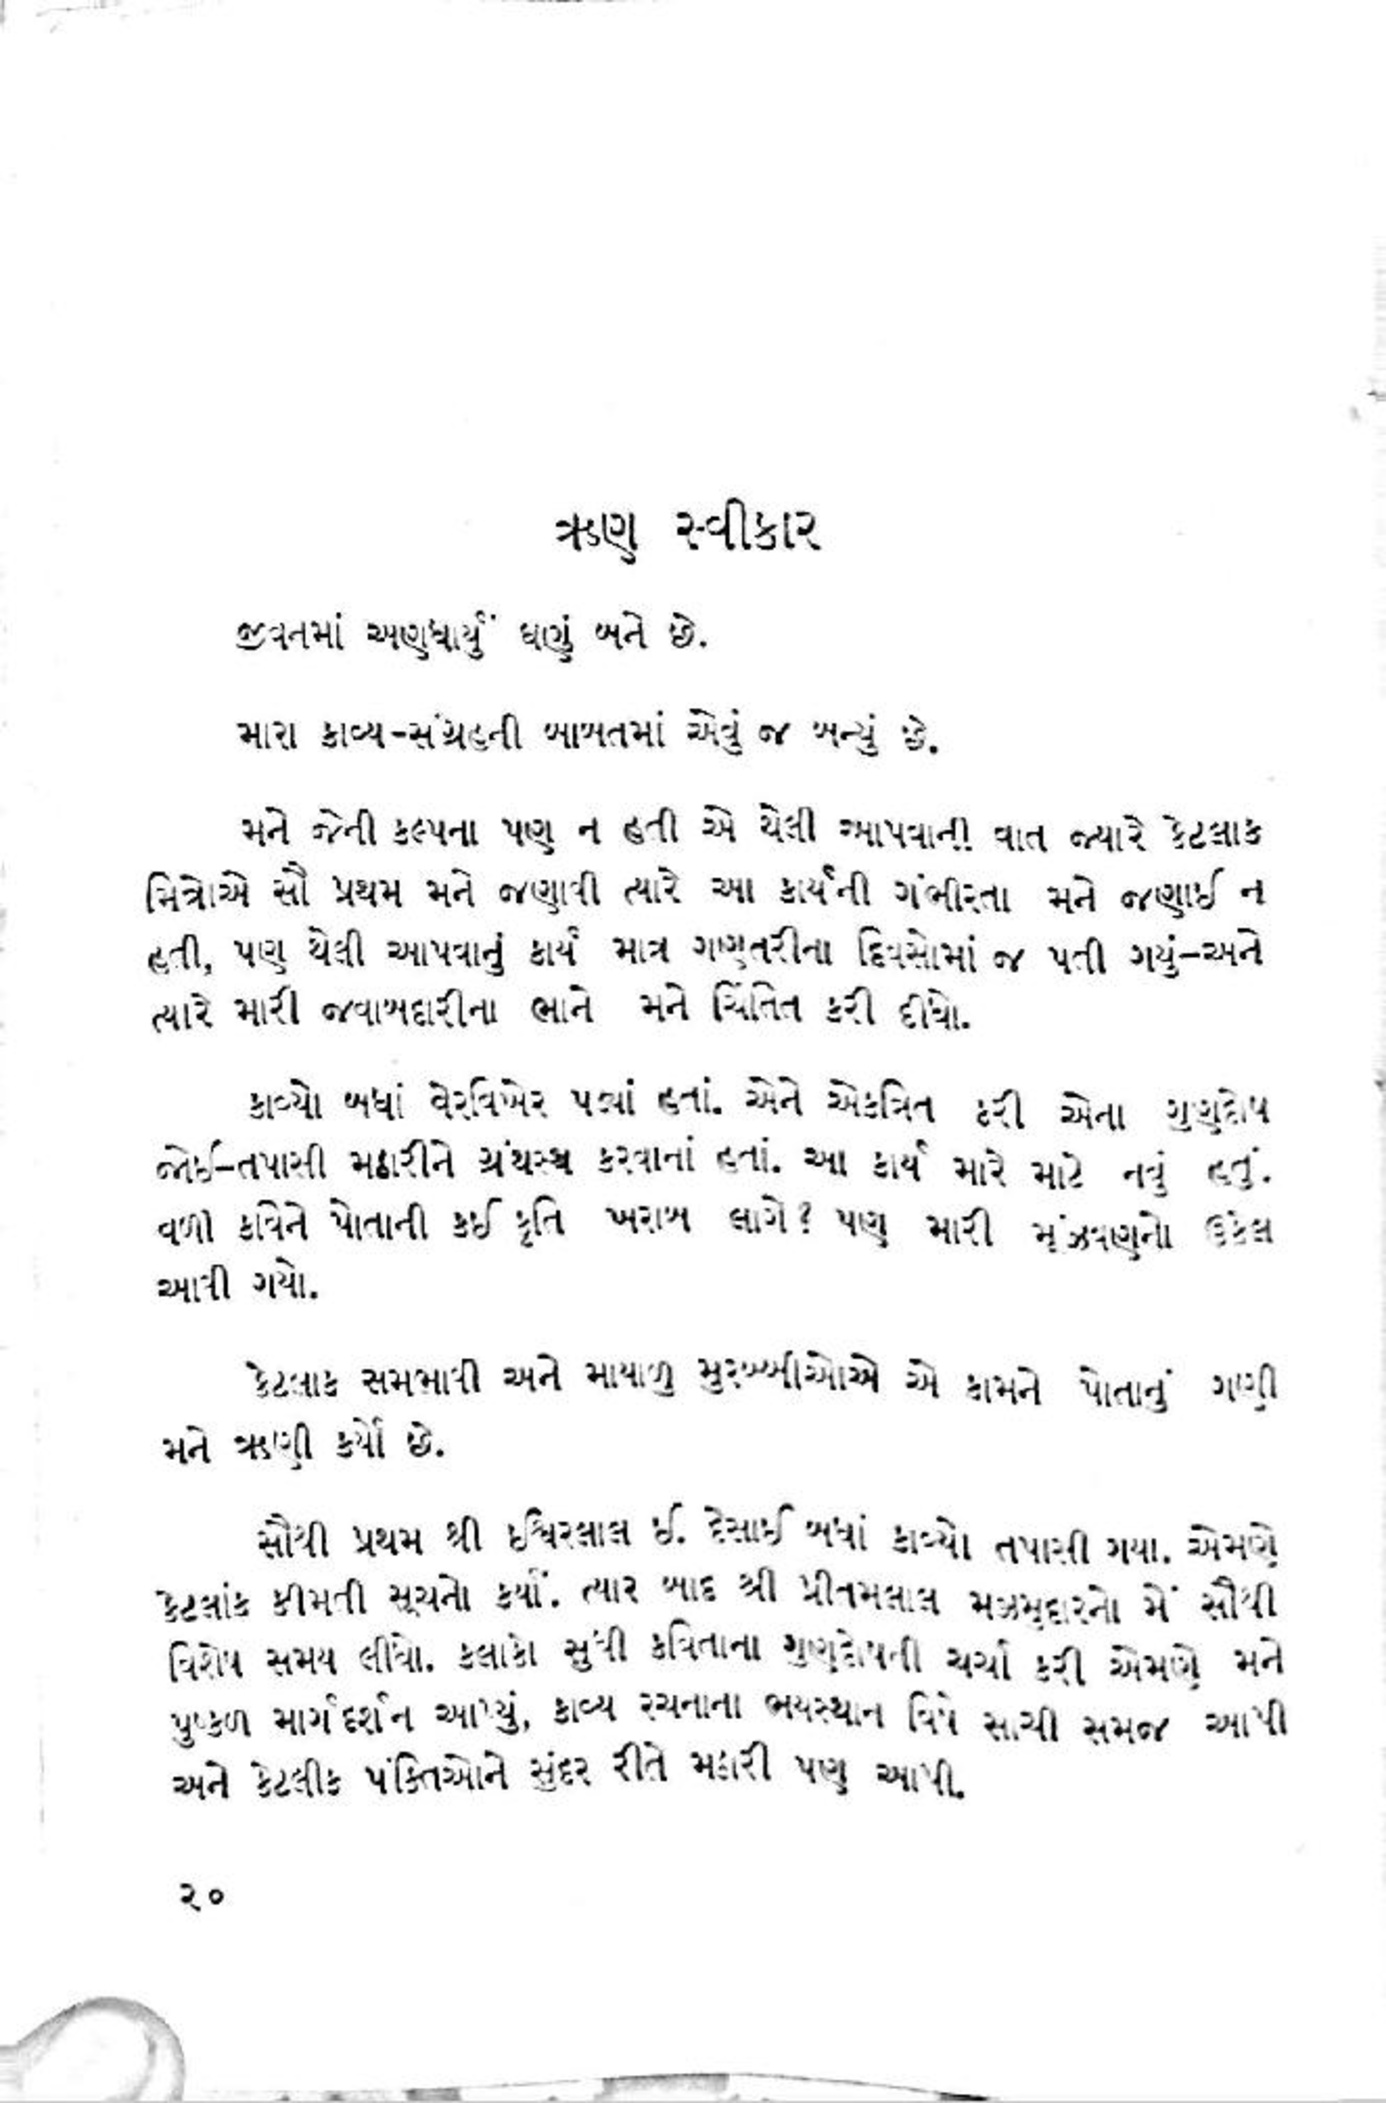 ઋણ સ્વીકાર
જીવનમાં અણધાર્યું ઘણું બને છે.
મારા કાવ્ય-સંગ્રહની બાબતમાં એવું જ બન્યું છે.
મને જેની કલ્પના પણ ન હતી એ થેલી આપવાની વાત જ્યારે કેટલાક
મિત્રોએ સૌ પ્રથમ મને જણાવી ત્યારે આ કાર્યની ગંભીરતા મને જણાઈ ન
હતી, પણ થેલી આપવાનું કાર્ય માત્ર ગણતરીના દિવસોમાં જ પતી ગયું-અને
ત્યારે મારી જવાબદારીના ભાને મને ચિંતિત કરી દીધો.
કાવ્યો બધાં વેરવિખેર પડ્યાં હતાં. એને એકત્રિત કરી એના ગુણદોષ
જોઈ-તપાસી મઠારીને ગ્રંથસ્થ કરવાનાં હતાં. આ કાર્ય મારે માટે નવું હતું.
વળી કવિને પોતાની કઈ કૃતિ ખરાબ લાગે? પણ મારી મૂંઝવણનો ઉકેલ
આવી ગયો.
કેટલાક સમભાવી અને માયાળુ મુરબ્બીઓએ એ કામને પોતાનું ગણી
મને ઋણી કર્યો છે.
સૌથી પ્રથમ શ્રી ઈશ્વિરલાલ ઈ. દેસાઈ બધાં કાવ્યો તપાસી ગયા. એમણે
કેટલાંક કીમતી સૂચનો કર્યાં. ત્યાર બાદ શ્રી પ્રીતમલાલ મઝમુદારનો મેં સૌથી
વિશેષ સમય લીધો. કલાકો સુધી કવિતાના ગુણદોષની ચર્ચા કરી એમણે મને
પુષ્કળ માર્ગદર્શન આપ્યું, કાવ્ય રચનાના ભયસ્થાન વિષે સાચી સમજ આપી
અને કેટલીક પંક્તિઓને સુંદર રીતે મઠારી પણ આપી.
૨૦